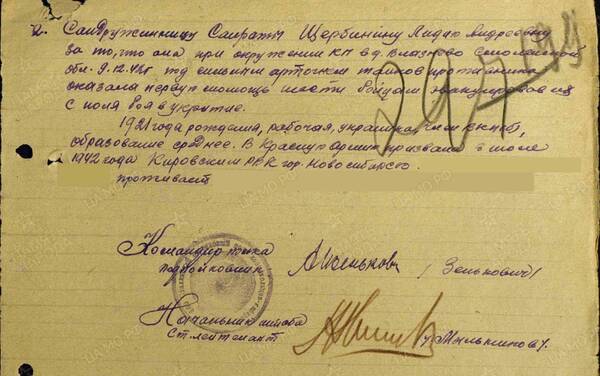 2. Сандружинницу Санроты Щербинину Лидию Андреевну
за то, что она при окружении КП в д. Власково Смоленской
обл. 9.12.42г под сильным артогнем танков противника
оказала первую помощь шести бойцам эвакуировав их
с поля боя в укрытие.
1921 года рождения, рабочая, украинка, член ВЛКСМ,
образование среднее. В Красную армию призвана в июле
1942 года Кировским РВК гор. Новосибирск.
проживает
Командир полка
подполковник /Зенькович/
Начальник штаба
Ст. лейтенант